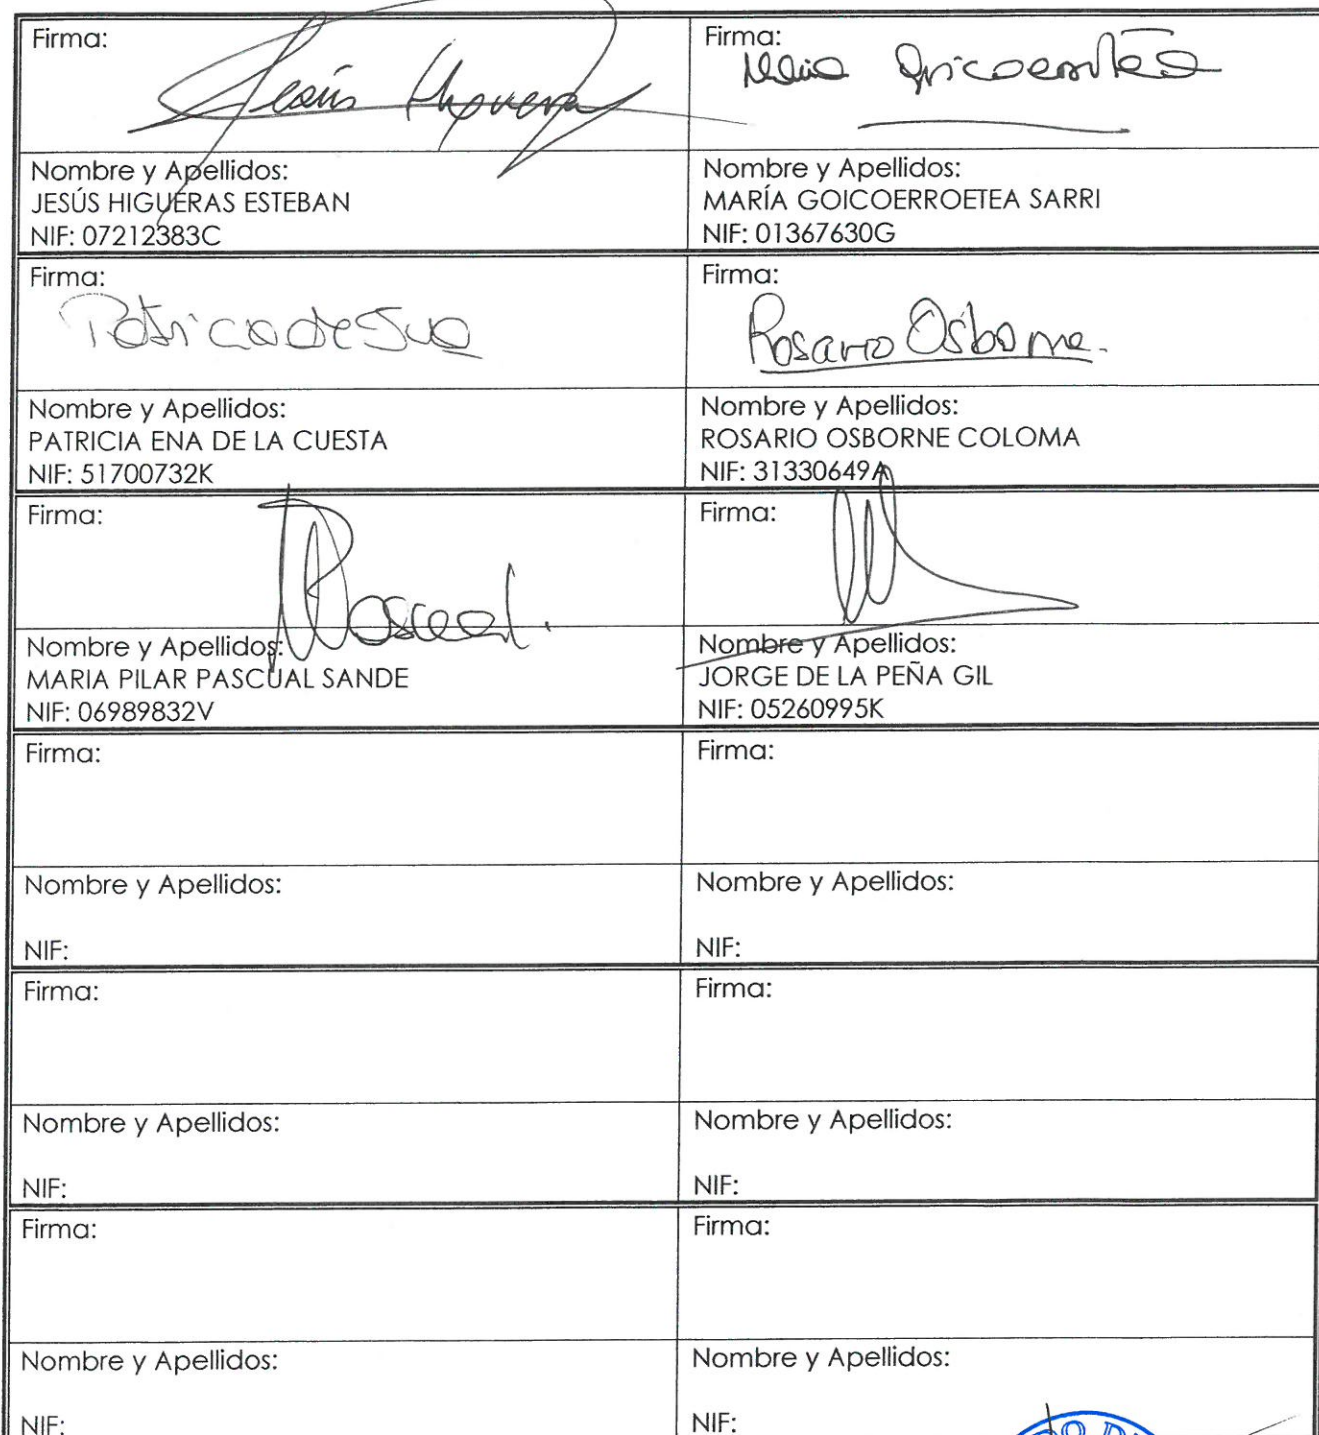 Firma:
Jesús Higueras
Firma:
María Goicoerrotea
Nombre y Apellidos:
JESÚS HIGUERAS ESTEBAN
NIF: 07212383C
Nombre y Apellidos:
MARÍA GOICOERROETEA SARRI
NIF: 01367630G
Firma:
Patricia de
Firma:
Rosario Osborne.
Nombre y Apellidos:
PATRICIA ENA DE LA CUESTA
NIF: 51700732K
Nombre y Apellidos:
ROSARIO OSBORNE COLOMA
NIF: 31330649A
Firma:
Pascual.
Firma:
Nombre y Apellidos:
MARIA PILAR PASCUAL SANDE
NIF: 06989832V
Nombre y Apellidos:
JORGE DE LA PEÑA GIL
NIF: 05260995K
Firma:
Firma:
Nombre y Apellidos:
NIF:
Nombre y Apellidos:
NIF:
Firma:
Firma:
Nombre y Apellidos:
NIF:
Nombre y Apellidos:
NIF:
Firma:
Firma:
Nombre y Apellidos:
NIF:
Nombre y Apellidos:
NIF: